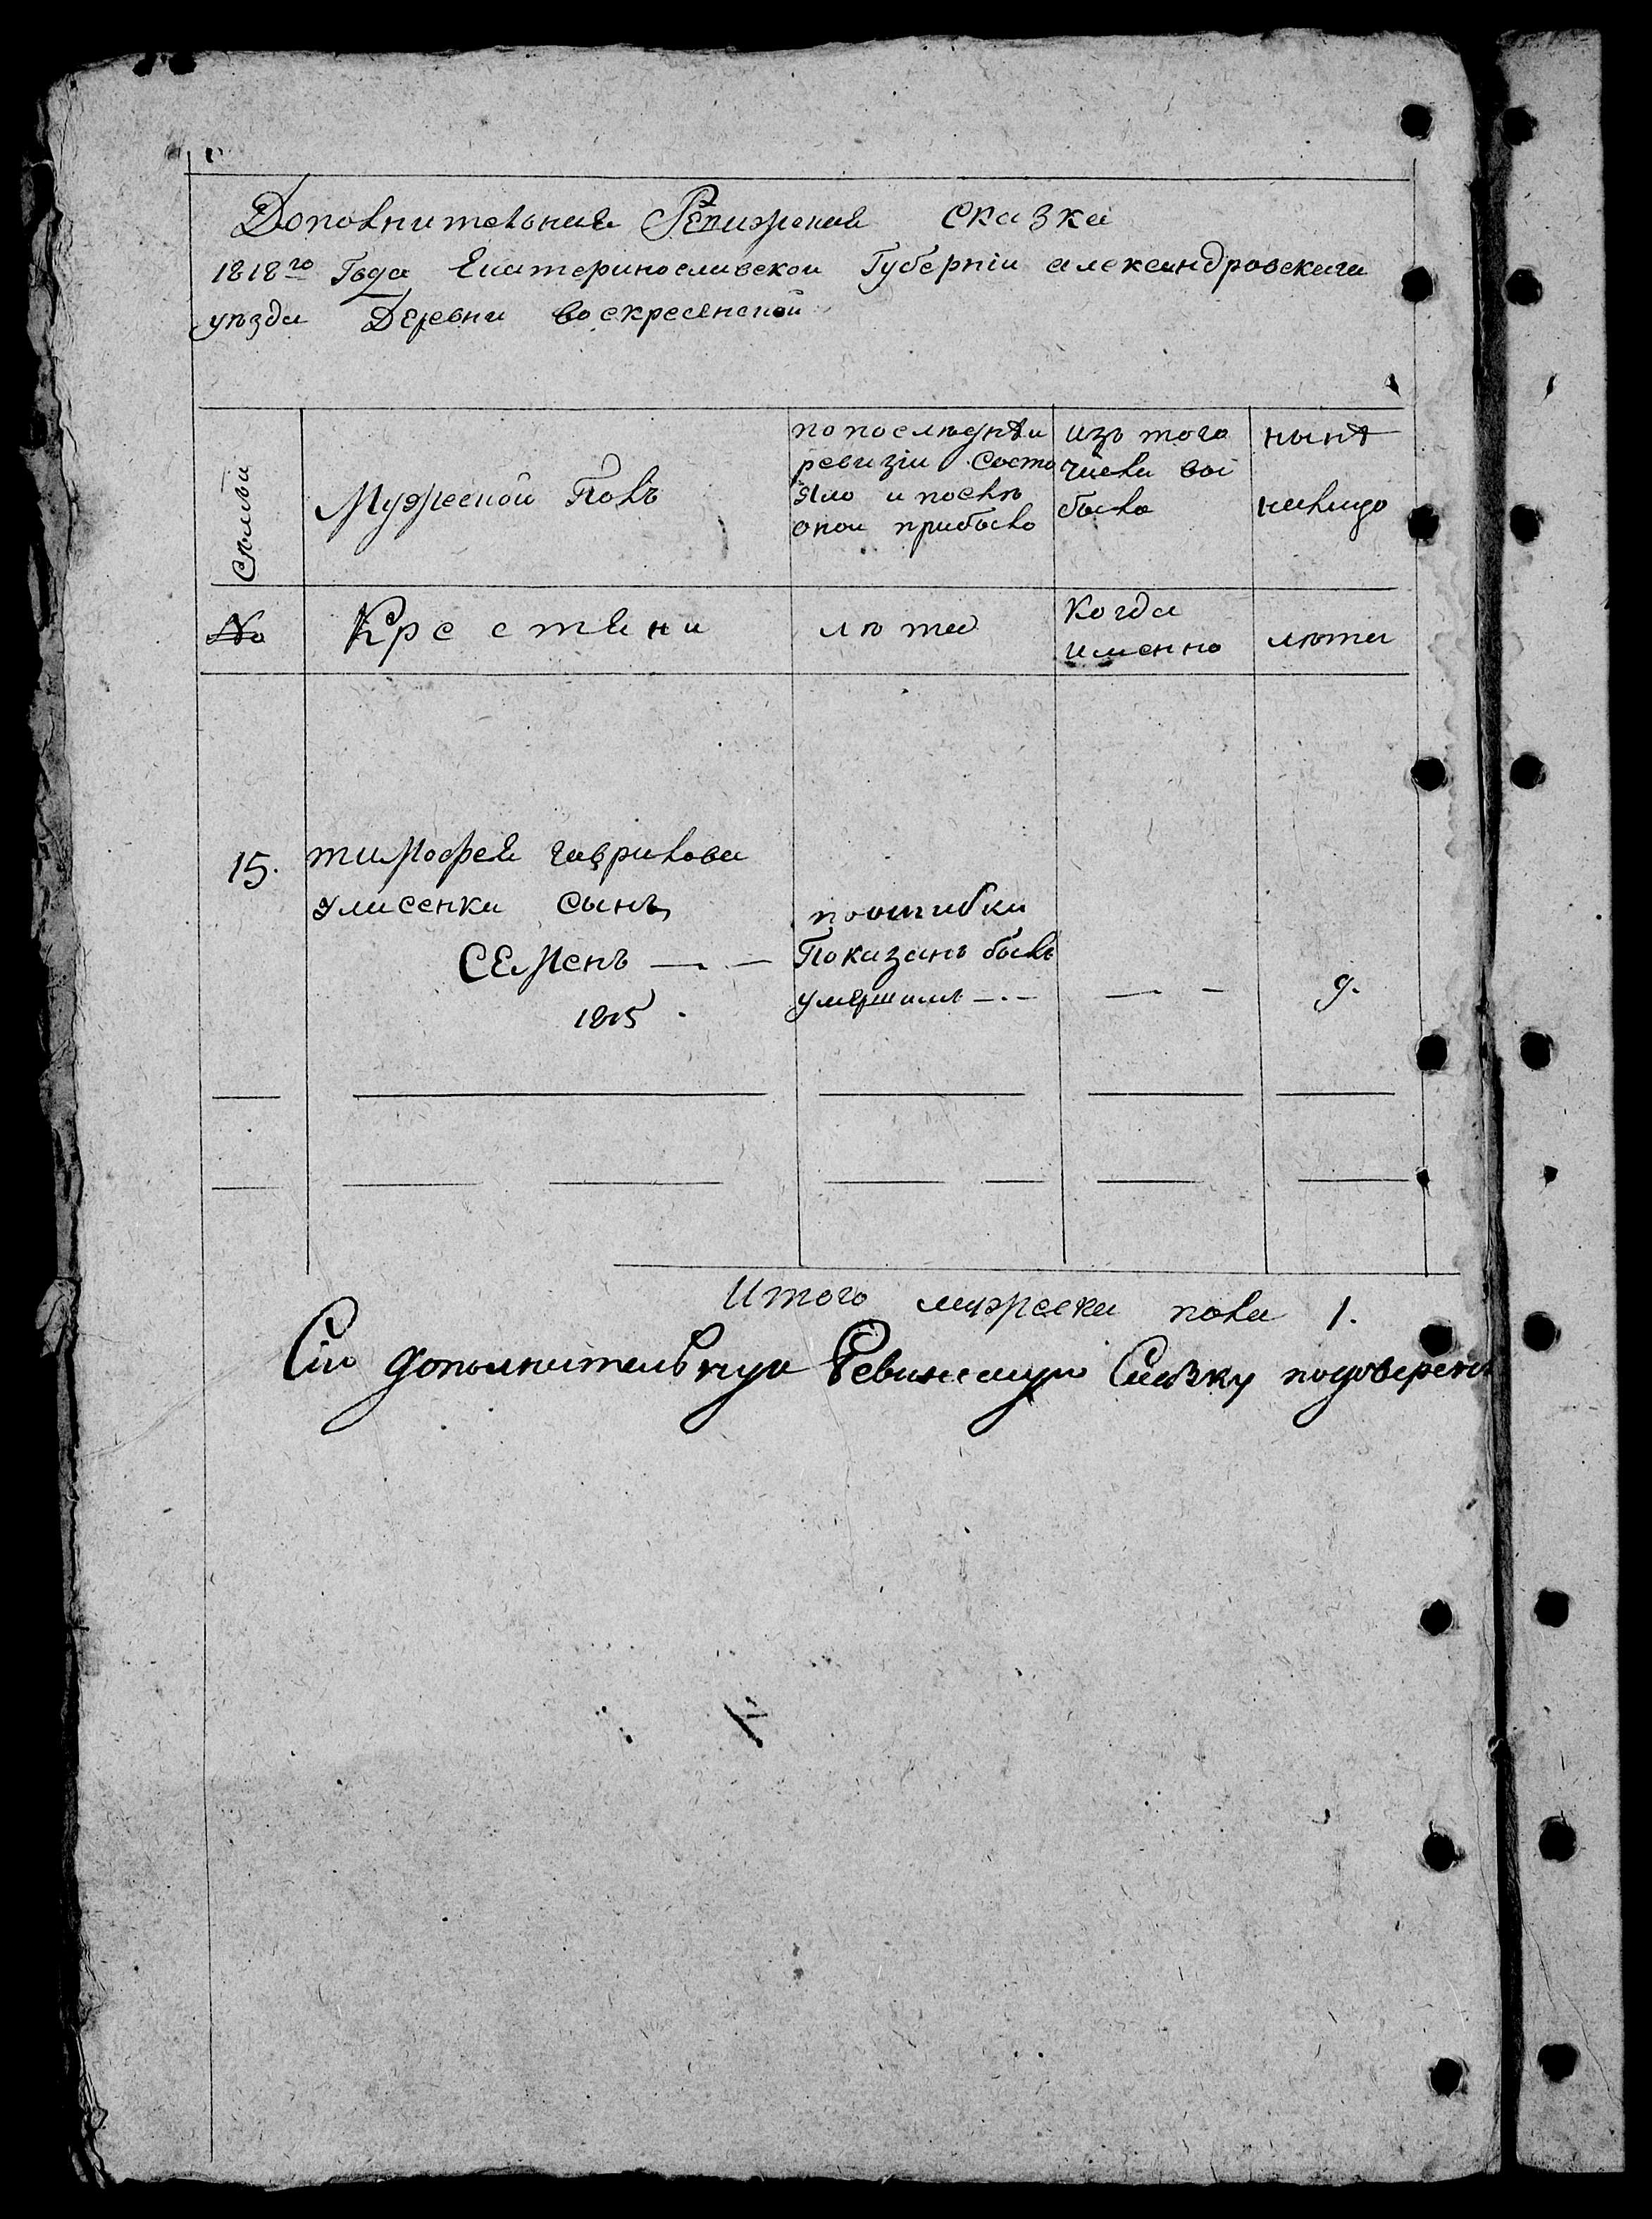 Дополнительная Ревижская сказка
1818го Года Екатеринославской Губерніи александровскаго
уезда Деревни воскресенской
Сѣмьи
Мужескои Полъ
по последнѣи
ревизіи Состо
яло и послѣ
онои прибыло
изъ того
числа вы
было
нынѣ
налицо
No
Крестяни
лѣта
Когда
именно
лѣта
15.
тимофея гаврилова
Сынъ
поошибки
СЕМенъ
Показанъ былъ
умершимъ
9.
1815
Итого мужеска пола 1.
Сію дополнительную Ревижскую Сказку